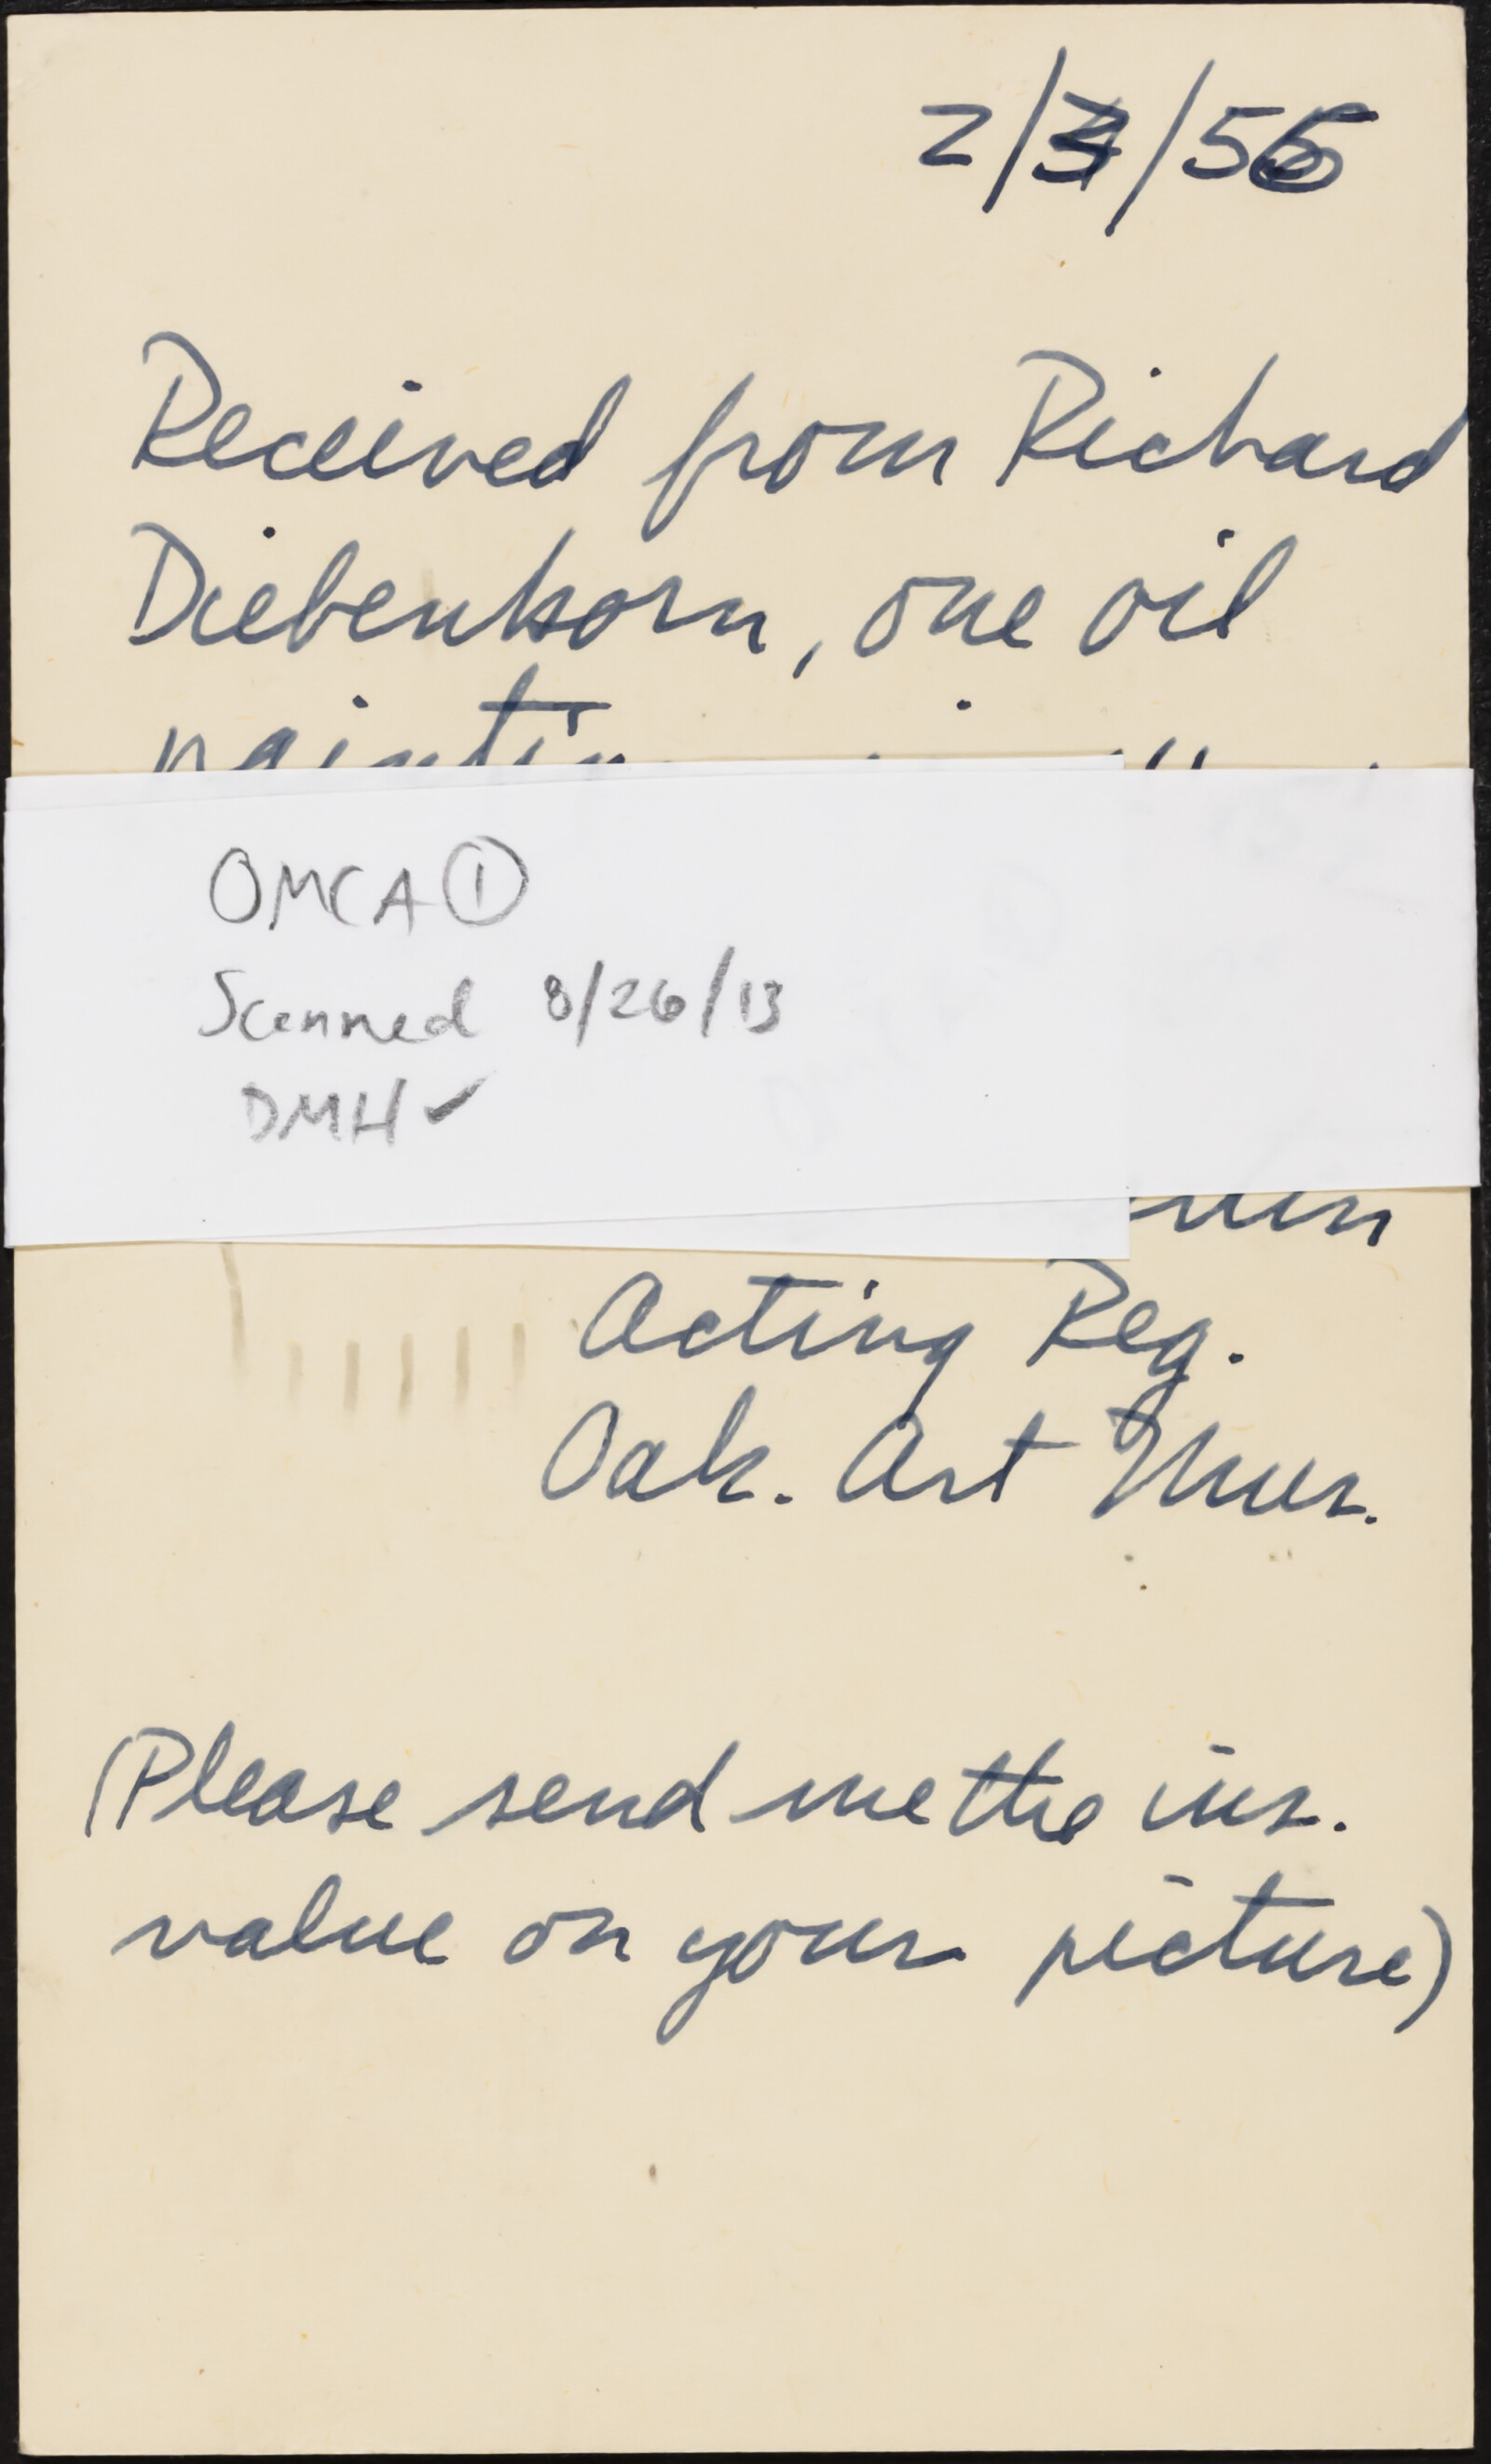 Received from Richard
Diebenhorn, one oil
OMCA ①
Scanned 8/26/13
DMH ✓
Acting Reg.
Oak. Art Mus.
(Please send me the ins.
value on your picture)